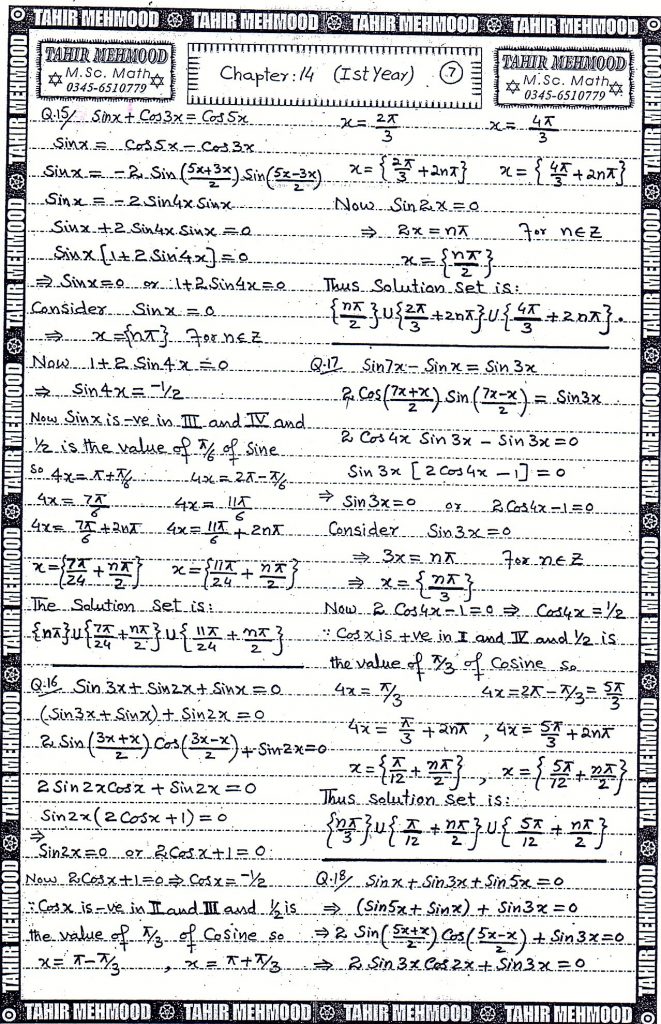 TAHIR MEHMOOD TAHIR MEHMOOD TAHIR MEHMOOD TAHIR MEHMOOD
TAHIR MEHMOOD
M.Sc. Math
0345-6510779
Chapter:14 (Ist Year) 7
TAHIR MEHMOOD
M.Sc. Math
0345-6510779
Q.15/ Sinx + Cos3x = Cos5x
Sinx = Cos5x - Cos3x
Sinx = -2 Sin ((5x+3x)/2) Sin((5x-3x)/2)
Sinx = -2 Sin4x Sinx
Sinx + 2 Sin4x Sinx = 0
Sinx [1 + 2 Sin4x] = 0
⇒ Sinx=0 or 1+2 Sin4x=0
Consider Sinx = 0
⇒ x = {nπ} For n∈Z
Now 1+2 Sin4x = 0
⇒ Sin4x = -1/2
Now Sinx is -ve in III and IV and
1/2 is the value of π/6 of Sine
so 4x = π+π/6 4x = 2π-π/6
4x = 7π/6 4x = 11π/6
4x = 7π/6 + 2nπ 4x = 11π/6 + 2nπ
x = {7π/24 + nπ/2} x = {11π/24 + nπ/2}
The Solution Set is:
{nπ}∪{7π/24 + nπ/2}∪{11π/24 + nπ/2}
Q.16 Sin3x + Sin2x + Sinx = 0
(Sin3x + Sinx) + Sin2x = 0
2 Sin ((3x+x)/2) Cos((3x-x)/2) + Sin2x=0
2 Sin2xCosx + Sin2x = 0
Sin2x (2Cosx + 1) = 0
⇒
Sin2x=0 or 2Cosx+1=0
Now 2Cosx+1=0 ⇒ Cosx = -1/2
∵ Cosx is -ve in II and III and 1/2 is
the value of π/3 of Cosine so
x = π-π/3 , x = π+π/3
x = 2π/3 x = 4π/3
x = {2π/3 + 2nπ} x = {4π/3 + 2nπ}
Now Sin2x = 0
⇒ 2x = nπ For n∈Z
x = {nπ/2}
Thus Solution Set is:
{nπ/2}∪{2π/3 + 2nπ}∪{4π/3 + 2nπ}.
Q.17 Sin7x - Sinx = Sin3x
2 Cos((7x+x)/2) Sin((7x-x)/2) = Sin3x
2 Cos4x Sin3x - Sin3x = 0
Sin3x [2Cos4x - 1] = 0
⇒ Sin3x=0 or 2Cos4x-1=0
Consider Sin3x = 0
⇒ 3x = nπ For n∈Z
⇒ x = {nπ/3}
Now 2 Cos4x-1=0 ⇒ Cos4x = 1/2
∵ Cosx is +ve in I and IV and 1/2 is
the value of π/3 of Cosine so
4x = π/3 4x = 2π - π/3 = 5π/3
4x = π/3 + 2nπ , 4x = 5π/3 + 2nπ
x = {π/12 + nπ/2} , x = {5π/12 + nπ/2}
Thus solution Set is:
{nπ/3}∪{π/12 + nπ/2}∪{5π/12 + nπ/2}
Q.18/ Sinx + Sin3x + Sin5x = 0
⇒ (Sin5x + Sinx) + Sin3x = 0
⇒ 2 Sin((5x+x)/2) Cos((5x-x)/2) + Sin3x=0
⇒ 2 Sin3x Cos2x + Sin3x = 0
TAHIR MEHMOOD TAHIR MEHMOOD TAHIR MEHMOOD TAHIR MEHMOOD
TAHIR MEHMOOD TAHIR MEHMOOD TAHIR MEHMOOD TAHIR MEHMOOD TAHIR MEHMOOD TAHIR MEHMOOD
TAHIR MEHMOOD TAHIR MEHMOOD TAHIR MEHMOOD TAHIR MEHMOOD TAHIR MEHMOOD TAHIR MEHMOOD